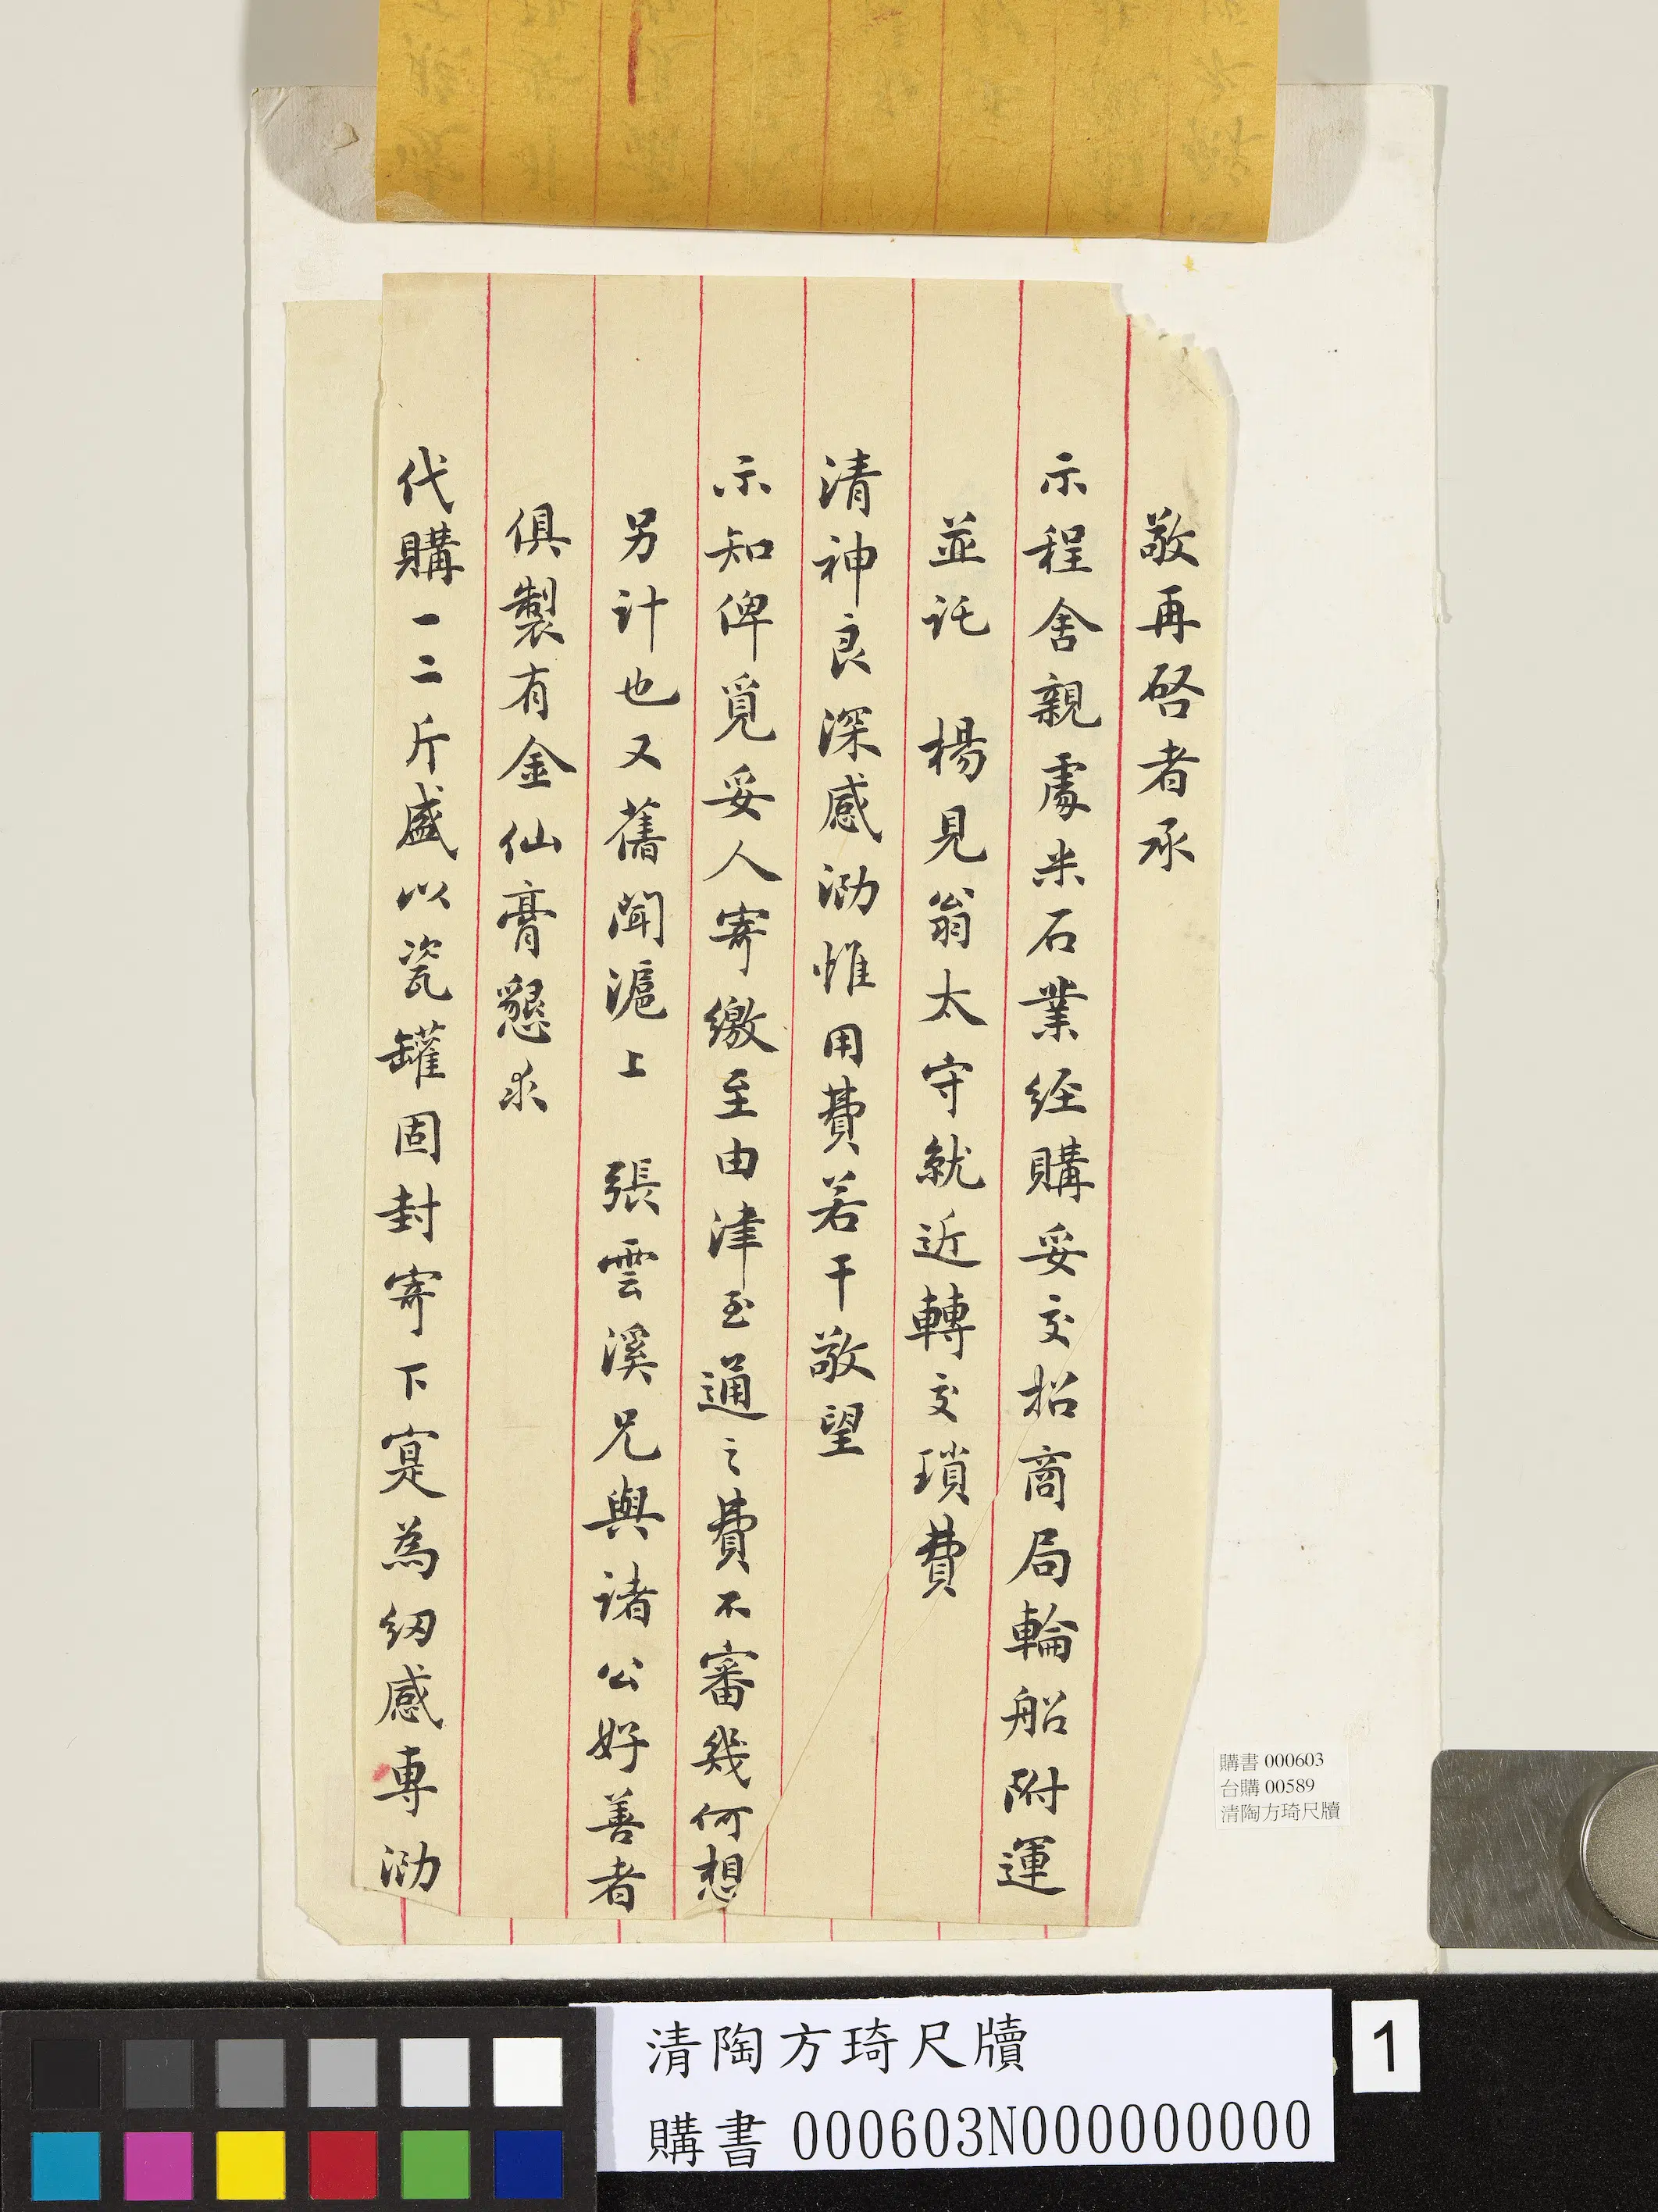 敬再啓者承
示程舍親處米石業經購妥交招商局輪船附運
並託　楊見翁太守就近轉交瑣費
清神良深感泐惟用費若干敬望
示知俾覓妥人寄繳至由津至通之費不審幾何想
另计也又舊聞滬上　張雲溪兄與诸公好善者
俱製有金仙膏懇求
代購一二斤盛以瓷罐固封寄下寔為紉感專泐
購書 000603
台購 00589
清陶方琦尺牘
清陶方琦尺牘
購書 000603N000000000
1